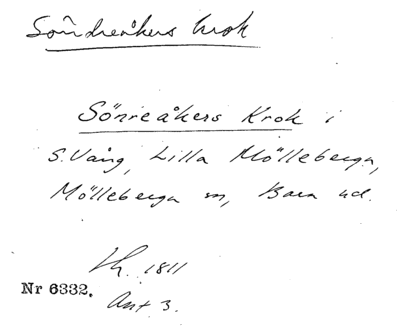 Söndreåkers krok
Sönreåkers Krok i
S. Vång, Lilla Mölleberga,
Mölleberga sn, Bara hd.
1811
Nr 6332.
Akt 3.